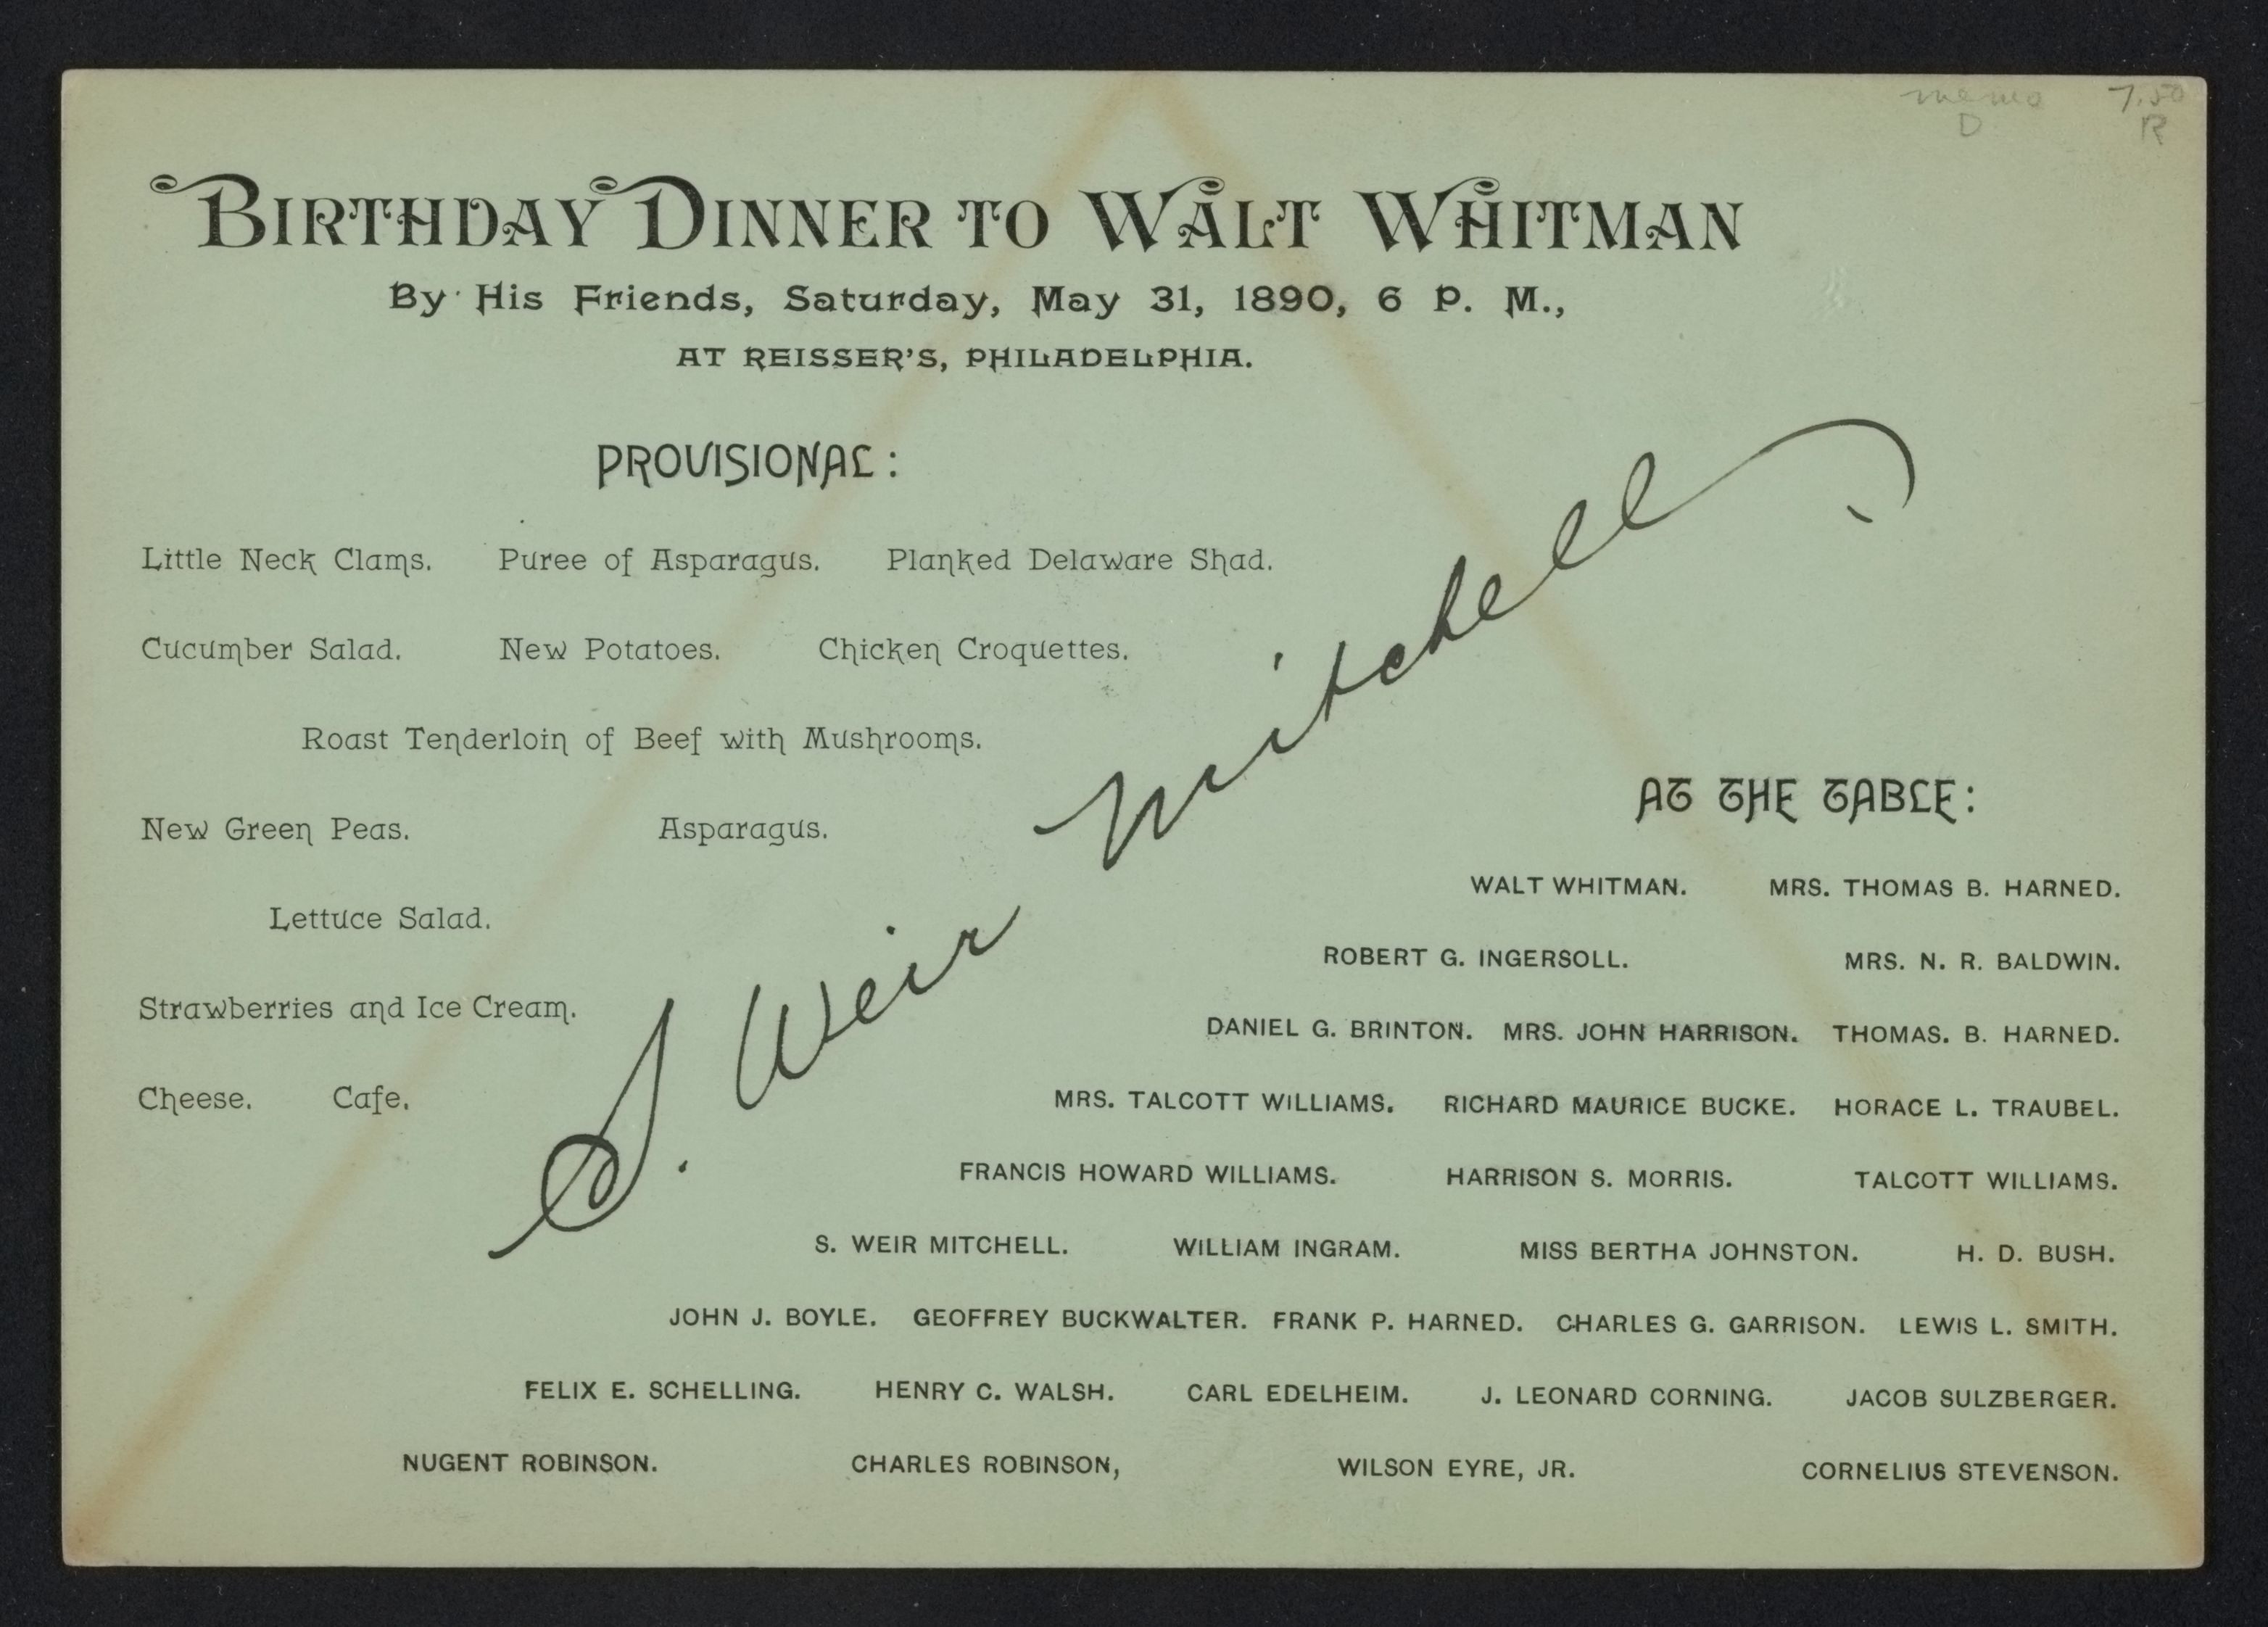 memo 7.50
D R
BIRTHDAY DINNER TO WALT WHITMAN
By His Friends, Saturday, May 31, 1890, 6 P. M.,
AT REISSER'S, PHILADELPHIA.
PROVISIONAL:
Little Neck Clams. Puree of Asparagus. Planked Delaware Shad.
Cucumber Salad. New Potatoes. Chicken Croquettes.
Roast Tenderloin of Beef with Mushrooms.
New Green Peas. Asparagus.
Lettuce Salad.
Strawberries and Ice Cream.
Cheese. Cafe.
S. Weir Mitchell
AT THE TABLE:
WALT WHITMAN. MRS. THOMAS B. HARNED.
ROBERT G. INGERSOLL. MRS. N. R. BALDWIN.
DANIEL G. BRINTON. MRS. JOHN HARRISON. THOMAS. B. HARNED.
MRS. TALCOTT WILLIAMS. RICHARD MAURICE BUCKE. HORACE L. TRAUBEL.
FRANCIS HOWARD WILLIAMS. HARRISON S. MORRIS. TALCOTT WILLIAMS.
S. WEIR MITCHELL. WILLIAM INGRAM. MISS BERTHA JOHNSTON. H. D. BUSH.
JOHN J. BOYLE. GEOFFREY BUCKWALTER. FRANK P. HARNED. CHARLES G. GARRISON. LEWIS L. SMITH.
FELIX E. SCHELLING. HENRY C. WALSH. CARL EDELHEIM. J. LEONARD CORNING. JACOB SULZBERGER.
NUGENT ROBINSON. CHARLES ROBINSON, WILSON EYRE, JR. CORNELIUS STEVENSON.